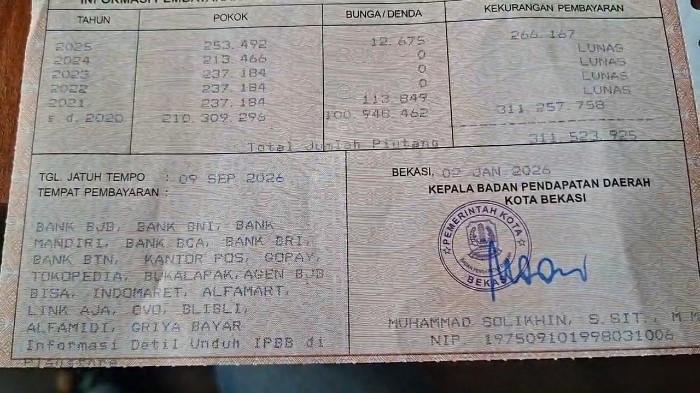 TAHUN POKOK BUNGA/DENDA KEKURANGAN PEMBAYARAN
2025 253.492 12.675 266.167
2024 213.466 0 LUNAS
2023 237.184 0 LUNAS
2022 237.184 0 LUNAS
2021 237.184 113.849 LUNAS
s.d.2020 210.309.296 100.948.462 311.257.758
Total Jumlah Piutang 311.523.925
TGL. JATUH TEMPO : 09 SEP 2026
TEMPAT PEMBAYARAN :
BANK BJB, BANK BNI, BANK
MANDIRI, BANK BCA, BANK BRI,
BANK BTN, KANTOR POS, GOPAY,
TOKOPEDIA, BUKALAPAK,AGEN BJB
BISA, INDOMARET, ALFAMART,
LINK AJA, OVO, BLIBLI,
ALFAMIDI, GRIYA BAYAR
Informasi Detil Unduh IPBB di
Playstore
BEKASI, 02 JAN 2026
KEPALA BADAN PENDAPATAN DAERAH
KOTA BEKASI
PEMERINTAH KOTA
BADAN PENDAPATAN DAERAH
BEKASI
MUHAMMAD SOLIKHIN, S.SIT., M.M
NIP 197509101998031006